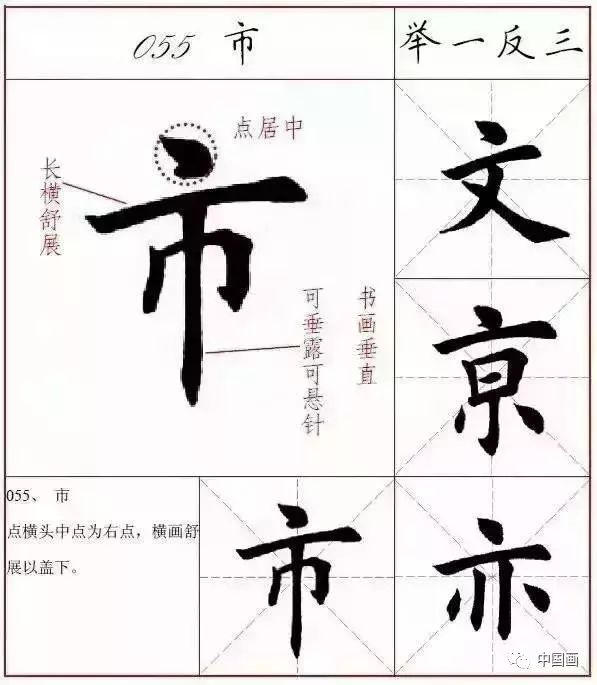 055 市
举一反三
市
点居中
长横舒展
可垂露可悬针
书画垂直
文
京
055、 市
点横头中点为右点，横画舒
展以盖下。
市
亦
中国画